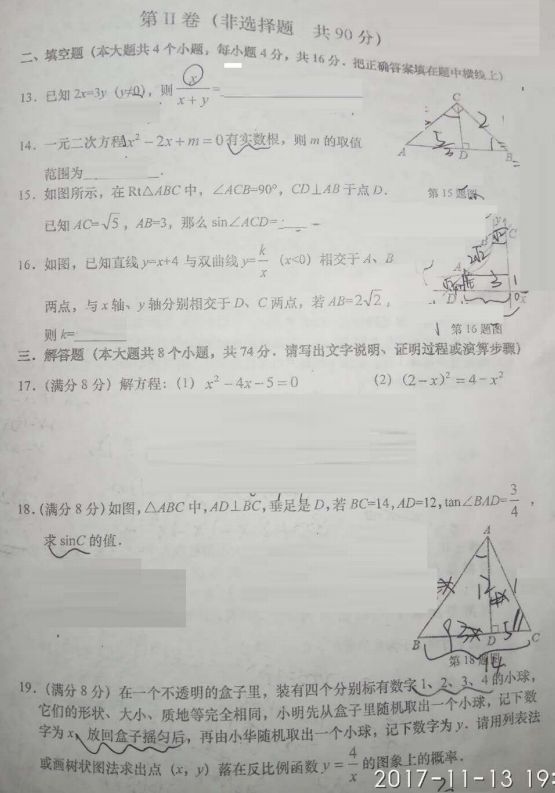 第Ⅱ卷（非选择题 共90分）
二、填空题（本大题共4个小题，每小题4分，共16分．把正确答案填在题中横线上）
13．已知2x=3y（y≠0），则 y/(x+y) =
14．一元二次方程x²－2x+m=0有实数根，则m的取值
范围为________．
15．如图所示，在Rt△ABC中，∠ACB=90°，CD⊥AB于点D．
第15题图
已知AC=√5，AB=3，那么sin∠ACD=
16．如图，已知直线y=x+4与双曲线y=k/x（x<0）相交于A、B
两点，与x轴、y轴分别相交于D、C两点，若AB=2√2，
则k=
第16题图
三、解答题（本大题共8个小题，共74分．请写出文字说明、证明过程或演算步骤）
17．（满分8分）解方程：（1）x²－4x－5=0 （2）（2－x）²=4－x²
18．（满分8分）如图，△ABC中，AD⊥BC，垂足是D，若BC=14，AD=12，tan∠BAD=3/4，
求sinC的值．
A
12
9 5
B D C
第18题图
14
19．（满分8分）在一个不透明的盒子里，装有四个分别标有数字1、2、3、4的小球，
它们的形状、大小、质地等完全相同，小明先从盒子里随机取出一个小球，记下数
字为x，放回盒子摇匀后，再由小华随机取出一个小球，记下数字为y．请用列表法
或画树状图法求出点（x，y）落在反比例函数y=4/x的图象上的概率．
2017-11-13 19: